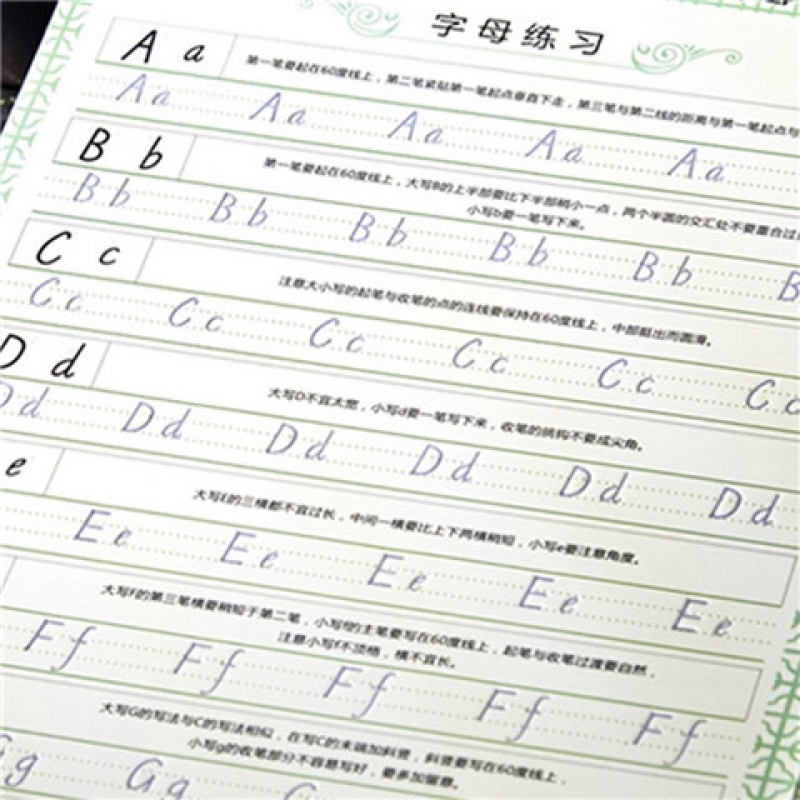 字母练习
A a
第一笔要起在60度线上，第二笔紧贴第一笔起点垂直下走，第三笔与第二线的距离与第一笔起点与
Aa Aa Aa Aa Aa
B b
第一笔要起在60度线上，大写B的上半部要比下半部稍小一点，两个半圆的交汇处不要重合过
小写b要一笔写下来。
Bb Bb Bb Bb Bb B
C c
注意大小写的起笔与收笔的点的连线要保持在60度线上，中部挺出而圆滑。
Cc Cc Cc Cc Cc Cc
D d
大写D不宜太宽，小写d要一笔写下来，收笔的挑钩不要成尖角。
Dd Dd Dd Dd Dd Dd
e
大写E的三横都不宜过长，中间一横要比上下两横稍短，小写e要注意角度。
Ee Ee Ee Ee Ee
大写F的第三笔横要稍短于第二笔，小写f的主笔要写在60度线上，起笔与收笔过渡要自然，
注意小写f不顶格，横不宜长。
Ff Ff Ff Ff Ff
大写G的写法与C的写法相似，在写C的末端加斜竖，斜竖要写在60度线上，
小写g的收笔部分不容易写好，要多加留意。
Gg Gg